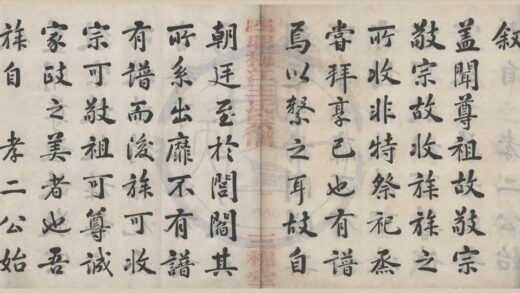 敘
蓋聞尊祖故敬宗
敬宗故收族族之
所收非特祭祀烝
嘗拜享已也有譜
焉以繫之耳故自
朝廷至於閭閻其
所系出靡不有譜
有譜而後族可收
宗可敬祖可尊誠
家政之美者也吾
族自 孝二公始